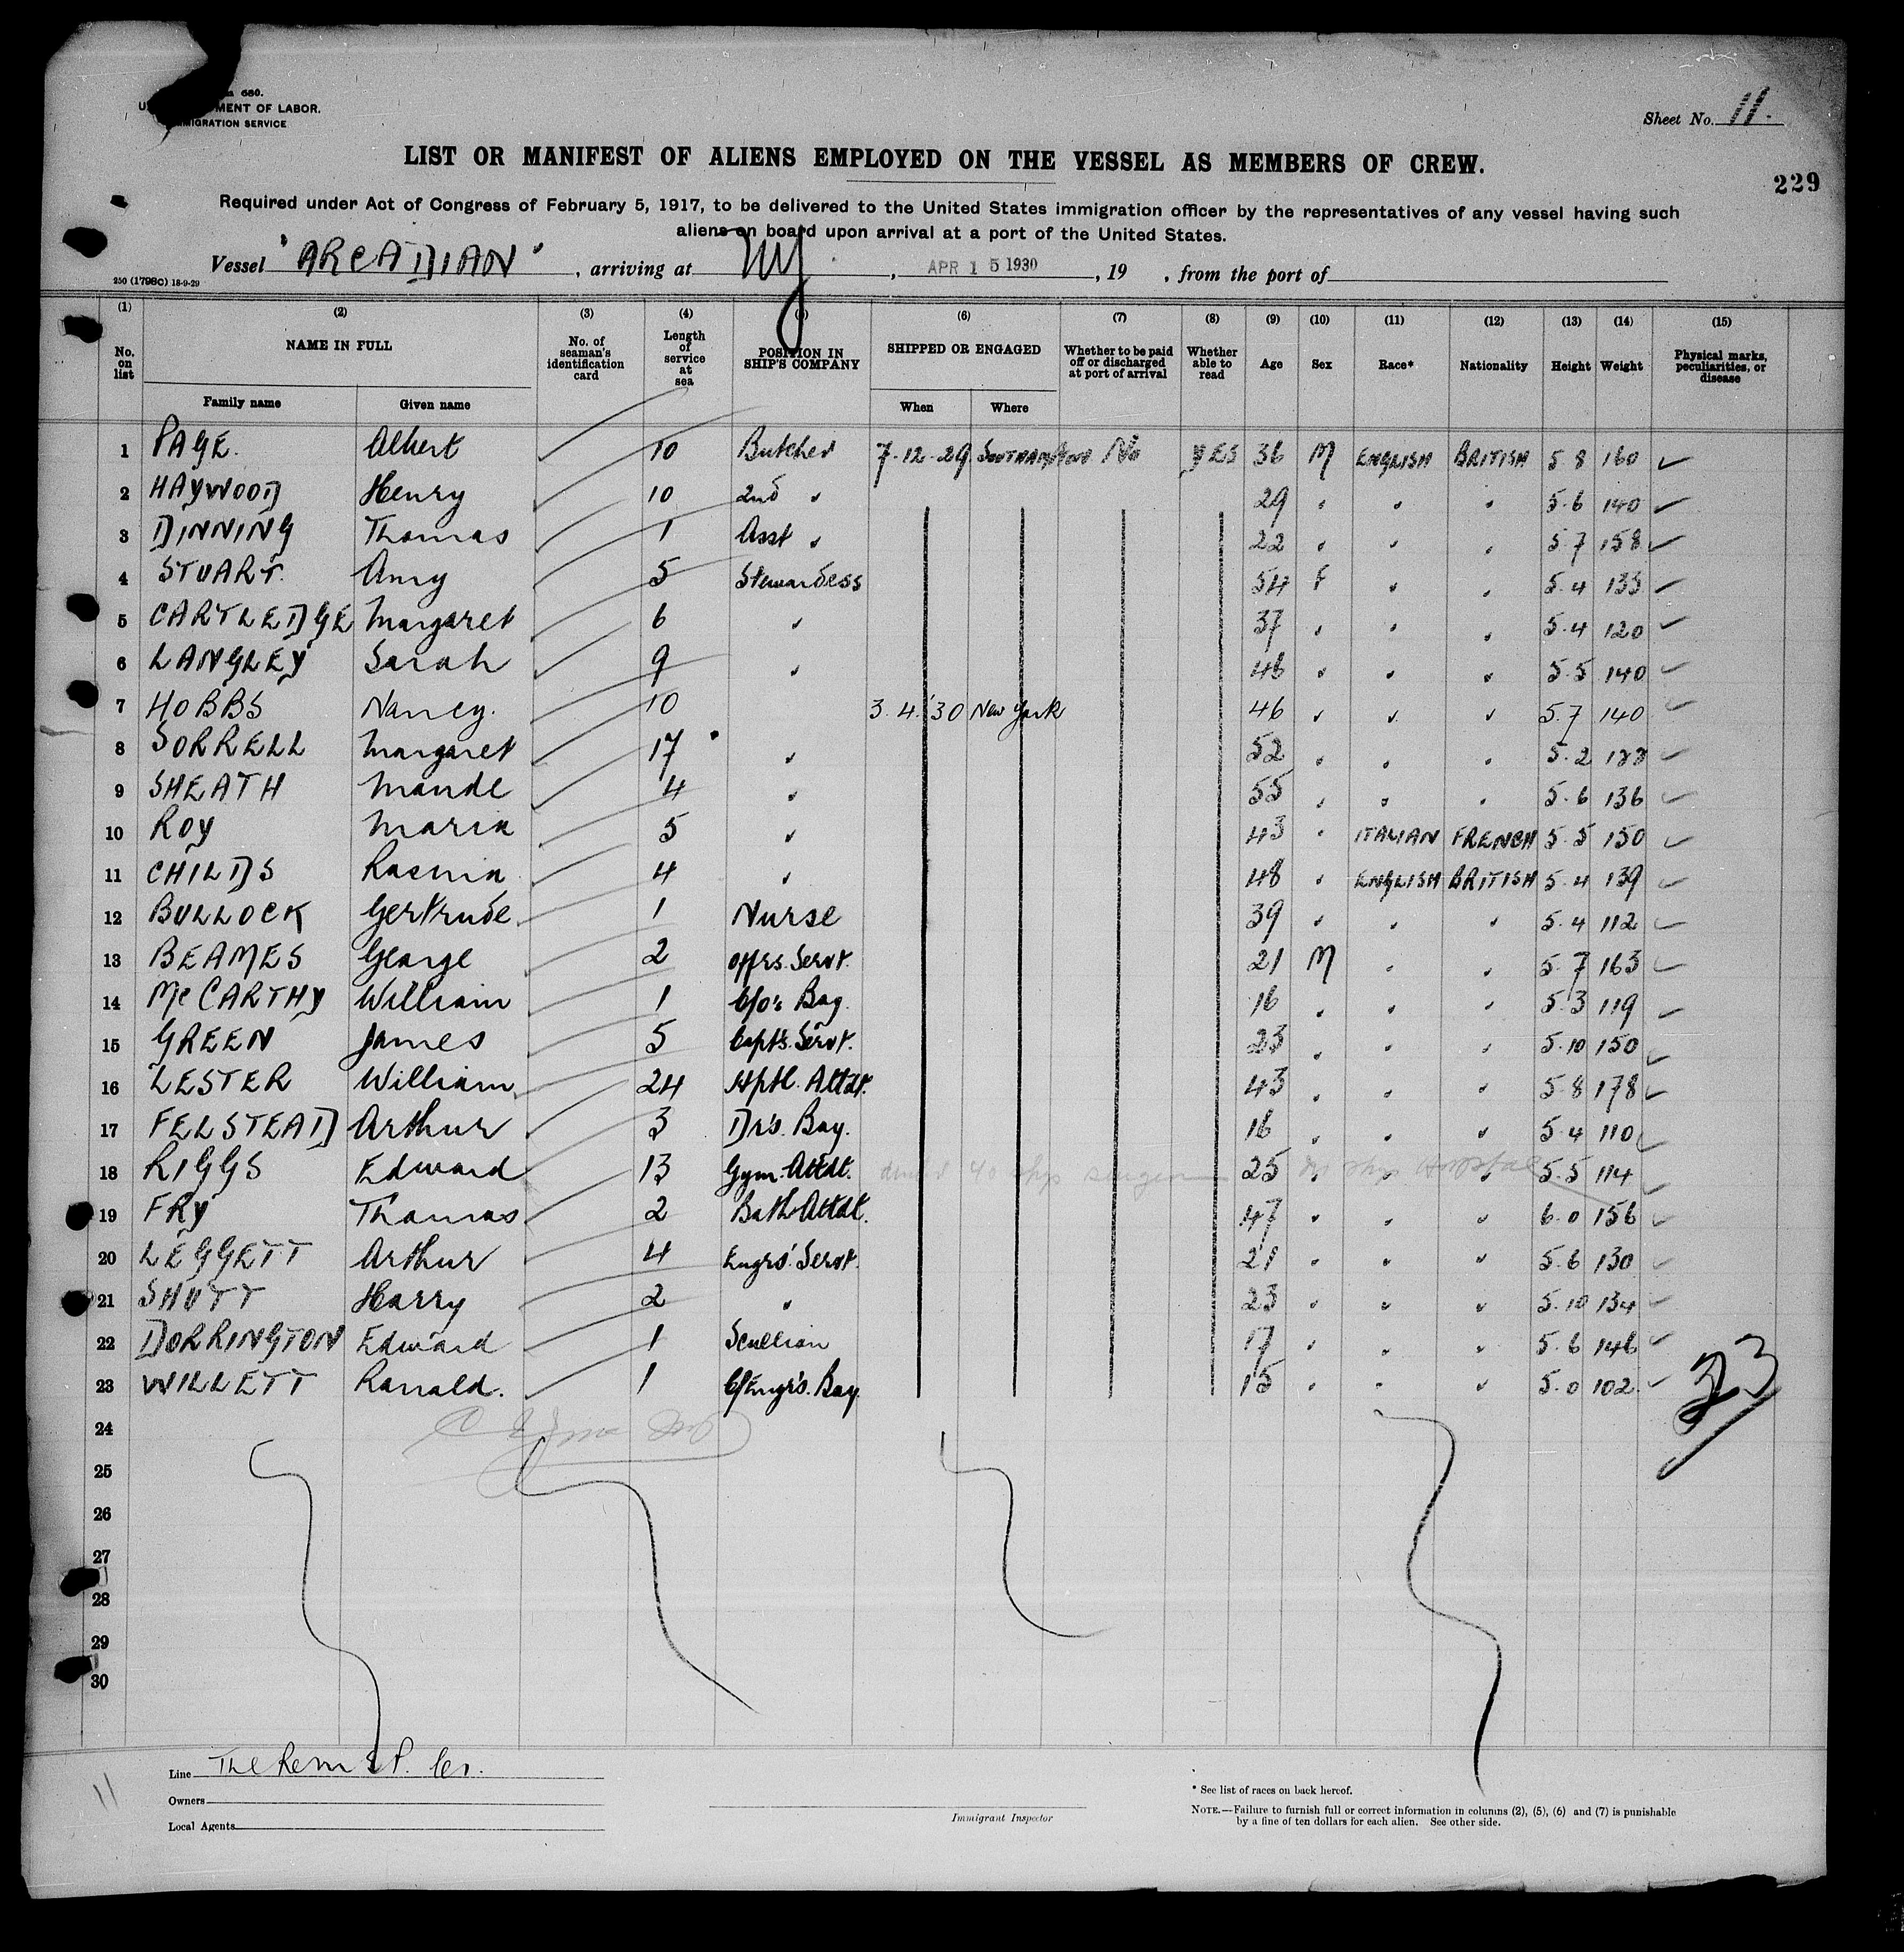 680.
MENT OF LABOR.
IMMIGRATION SERVICE
Sheet No. 11.
LIST OR MANIFEST OF ALIENS EMPLOYED ON THE VESSEL AS MEMBERS OF CREW.
229
Required under Act of Congress of February 5, 1917, to be delivered to the United States immigration officer by the representatives of any vessel having such
aliens on board upon arrival at a port of the United States.
Vessel "ARCADIAN", arriving at NY, APR 15 1930, 19 , from the port of
250 (1798C) 18-9-29
(1) (2) (3) (4) (5) (6) (7) (8) (9) (10) (11) (12) (13) (14) (15)
No. on list NAME IN FULL No. of seaman's identification card Length of service at sea POSITION IN SHIP'S COMPANY SHIPPED OR ENGAGED Whether to be paid off or discharged at port of arrival Whether able to read Age Sex Race* Nationality Height Weight Physical marks, peculiarities, or disease
Family name Given name When Where
1 PAGE. Albert 10 Butcher 7-12-29 SOUTHAMPTON No YES 36 M ENGLISH BRITISH 5 8 160 ✓
2 HAYWOOD Henry 10 2nd " 29 " " " 5.6 140 ✓
3 DINNING Thomas 1 Asst " 22 " " " 5.7 158 ✓
4 STUART. Amy 5 Stewardess 54 F " " 5.4 135 ✓
5 CARTLEDGE Margaret 6 " 37 " " " 5.4 120 ✓
6 LANGLEY Sarah 9 " 46 " " " 5.5 140 ✓
7 HOBBS Nancy. 10 3.4.'30 New York 46 " " " 5.7 140 ✓
8 SORRELL Margaret 17 " 52 " " " 5.2 ✓
9 SHEATH Maude 4 " 55 " " " 5.6 136 ✓
10 ROY Maria 5 " 43 " ITALIAN FRENCH 5.5 150 ✓
11 CHILDS Rosina 4 " 48 " ENGLISH BRITISH 5.4 139 ✓
12 BULLOCK Gertrude. 1 Nurse 39 " " " 5.4 112 ✓
13 BEAMES George 2 Offrs. Servt. 21 M " " 5.7 163 ✓
14 McCARTHY William 1 C/o's Boy. 16 " " " 5.3 119 ✓
15 GREEN James 5 Capt's. Servt. 23 " " " 5.10 150 ✓
16 LESTER William 24 Hptl. Attdt. 43 " " " 5.8 178 ✓
17 FELSTEAD Arthur 3 Dr's. Boy. 16 " " " 5.4 110 ✓
18 RIGGS Edward 13 Gym. Attdt. 25 " " " 5.5 114 ✓
19 FRY Thomas 2 Bath Attdt. 47 " " " 6.0 156 ✓
20 LEGGETT Arthur 4 Engrs'. Servt. 21 " " " 5.6 130 ✓
21 SHUTT Harry 2 " 23 " " " 5.10 134 ✓
22 DORRINGTON Edward 1 Scullion 17 " " " 5.6 146 ✓
23 WILLETT Ronald. 1 C/Engr's. Boy. 15 " " " 5.0 102 ✓
23
24
25
26
27
28
29
30
11
Line The S.P. Co.
Owners
Local Agents
Immigrant Inspector
* See list of races on back hereof.
NOTE.—Failure to furnish full or correct information in columns (2), (5), (6) and (7) is punishable
by a fine of ten dollars for each alien. See other side.